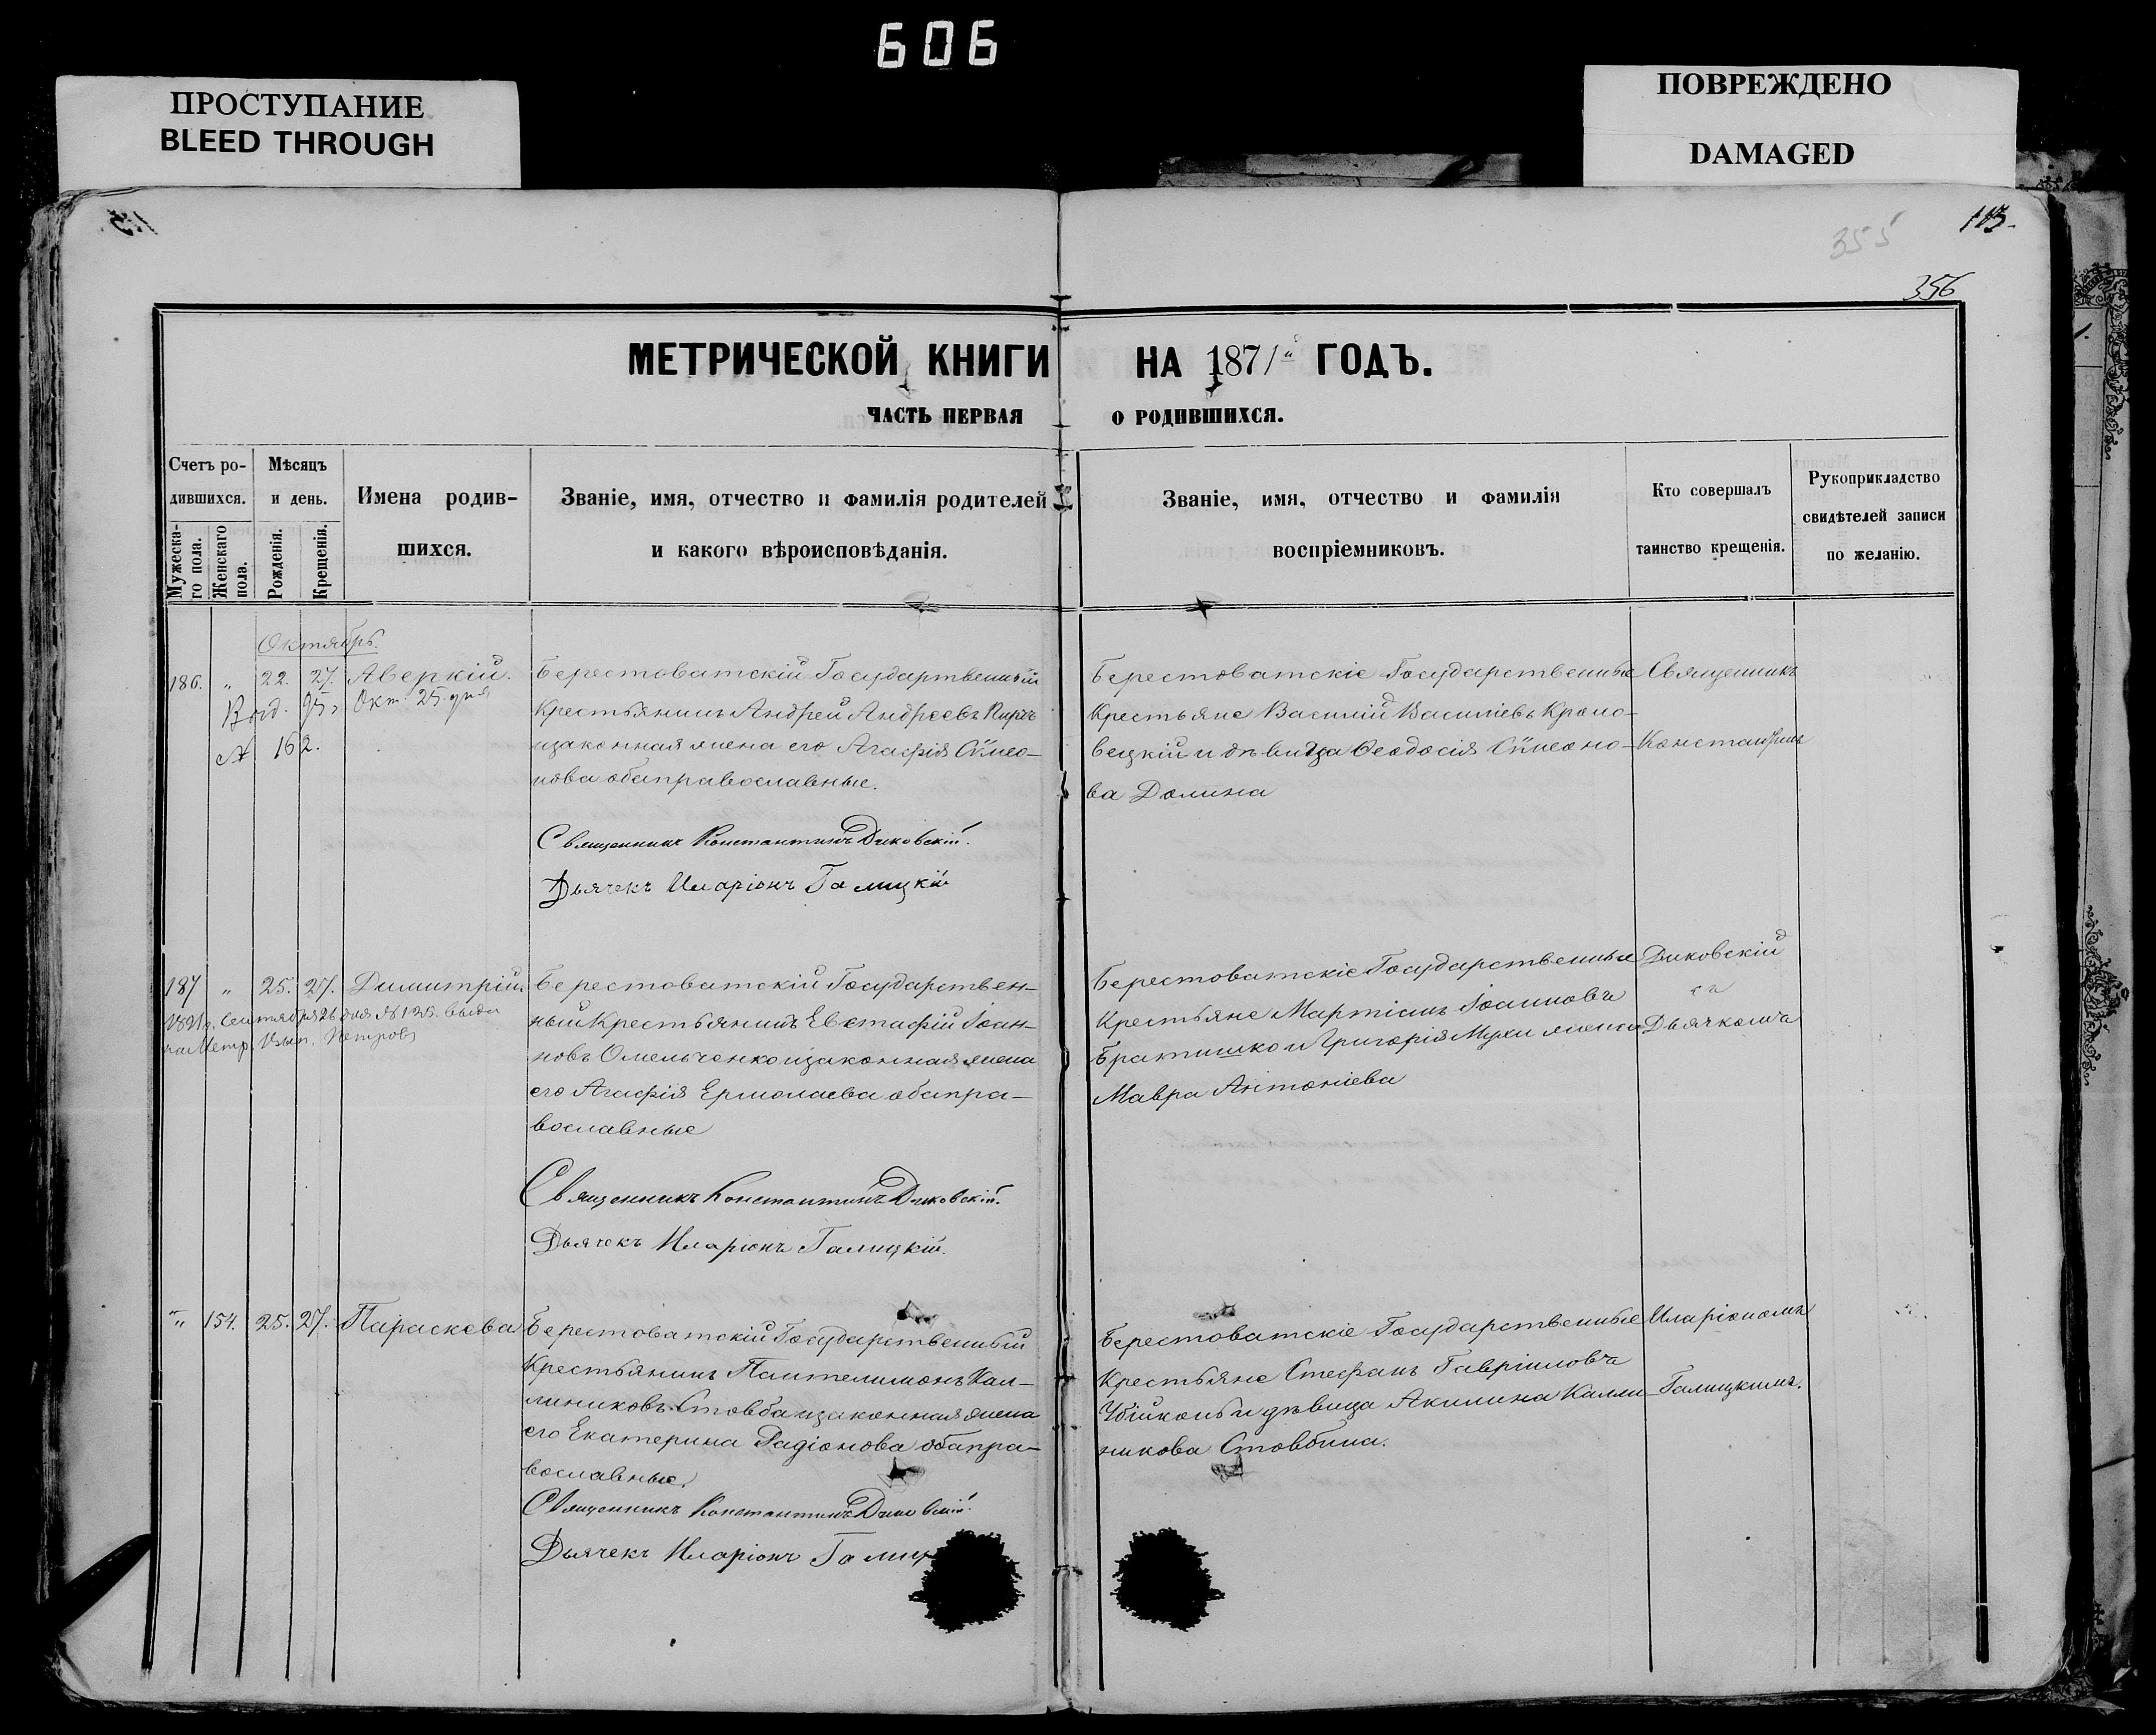 606
ПРОСТУПАНИЕ
BLEED THROUGH
ПОВРЕЖДЕНО
DAMAGED
113.
355
356
МЕТРИЧЕСКОЙ КНИГИ НА 1871й ГОДЪ.
ЧАСТЬ ПЕРВАЯ О РОДИВШИХСЯ.
Счетъ ро-
дившихся.
Мужеска-
го пола.
Женскаго
пола.
Мѣсяцъ
и день.
Рожденія.
Крещенія.
Имена родив-
шихся.
Званіе, имя, отчество и фамилія родителей
и какого вѣроисповѣданія.
Званіе, имя, отчество и фамилія
воспріемниковъ.
Кто совершалъ
таинство крещенія.
Рукоприкладство
свидѣтелей записи
по желанію.
Октябрь.
186. " 22. 27. Аверкій.
Окт. 25. дня
№ 162.
Берестоватскій Государственный
Крестьянинъ Андрей Андреевъ
изаконная жена его Агафія Сѵмео-
нова обаправославные.
Священникъ Константинъ Диковскій.
Дьячекъ Иларіонъ Галицкій
Берестоватскіе Государственные
Крестьяне Василій Василіевъ Кроно-
вецкій и дѣвица Ѳеодосія Сѵмеоно-
ва Долина
Священникъ
Константинъ
187 " 25. 27. Димитрій.
Сентября 26 дня
Петровъ
Берестоватскій Государствен-
ный Крестьянинъ Евстафій Іоан-
новъ Омельченко изаконная жена
его Агафія Ермолаева обапра-
вославные
Священникъ Константинъ Диковскій.
Дьячекъ Иларіонъ Галицкій.
Берестоватскіе Государственные
Крестьяне Мартинъ Іоанновъ
Братишко и Григорія Мухи жена
Мавра Антоніева
Диковскій
съ
Дьячкомъ
" 154. 25. 27. Параскева
Берестоватскій Государственный
Крестьянинъ Пантелимонъ Кал-
линиковъ Стовба изаконная жена
его Екатерина Радіонова обапра-
вославные.
Священникъ Константинъ Диковскій.
Дьячекъ Иларіонъ Галиц
Берестоватскіе Государственные
Крестьяне Стефанъ Гавріиловъ
Убійконь и дѣвица Акилина Калли-
никова Стовбина.
Иларіономъ
Галицкимъ.